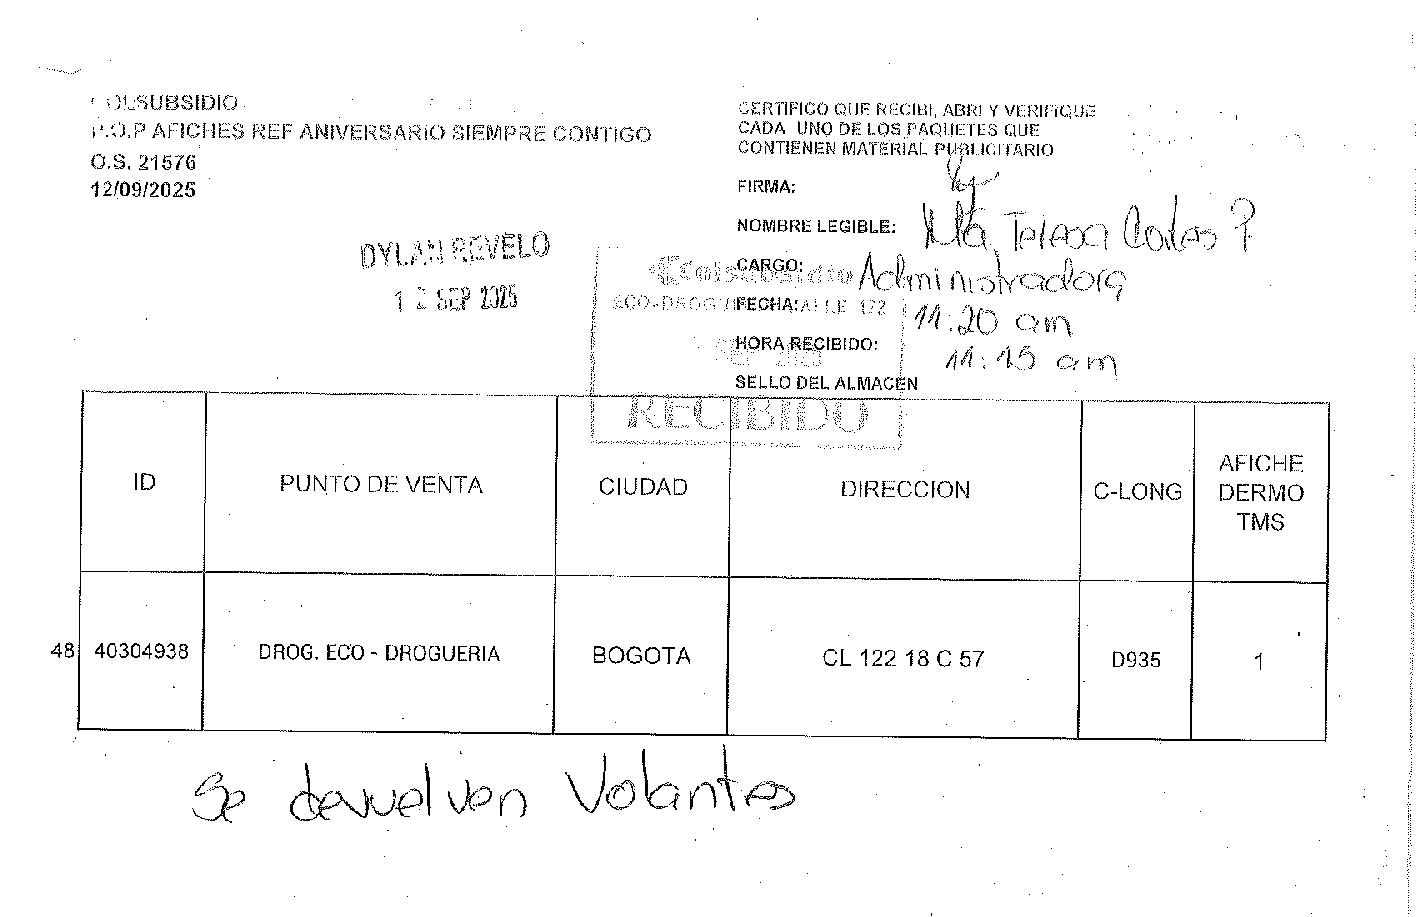 COLSUBSIDIO
P.O.P AFICHES REF ANIVERSARIO SIEMPRE CONTIGO
O.S. 21576
12/09/2025
CERTIFICO QUE RECIBI, ABRI Y VERIFIQUE
CADA UNO DE LOS PAQUETES QUE
CONTIENEN MATERIAL PUBLICITARIO
FIRMA:
NOMBRE LEGIBLE: Ma Teresa Cortes P
CARGO: Administradora
FECHA: 11:20 am
HORA RECIBIDO: 11:15 am
SELLO DEL ALMACEN
DYLAN REVELO
12 SEP 2025
Colsubsidio
RECIBIDO
ID PUNTO DE VENTA CIUDAD DIRECCION C-LONG AFICHE DERMO TMS
48 40304938 DROG. ECO - DROGUERIA BOGOTA CL 122 18 C 57 D935 1
Se devuelven Volantes